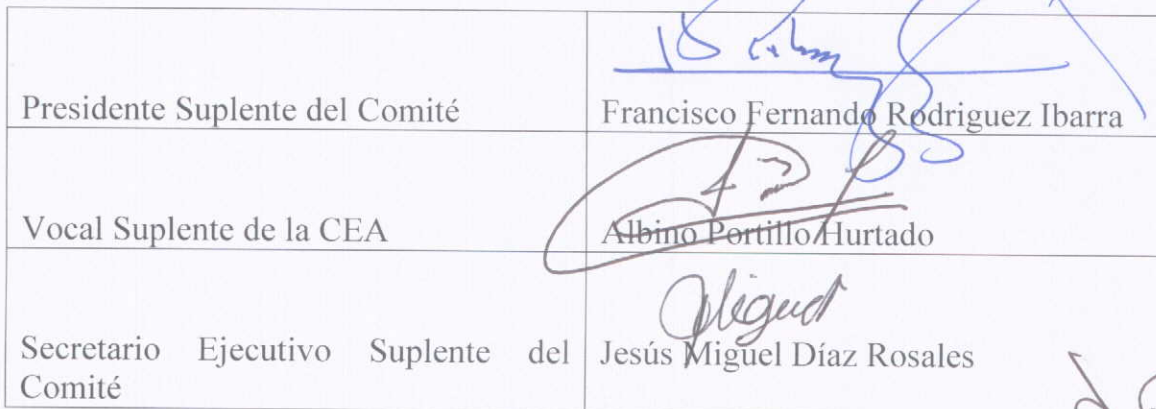 Presidente Suplente del Comité
Francisco Fernando Rodriguez Ibarra
Vocal Suplente de la CEA
Albino Portillo Hurtado
Miguel
Secretario Ejecutivo Suplente del
Comité
Jesús Miguel Díaz Rosales